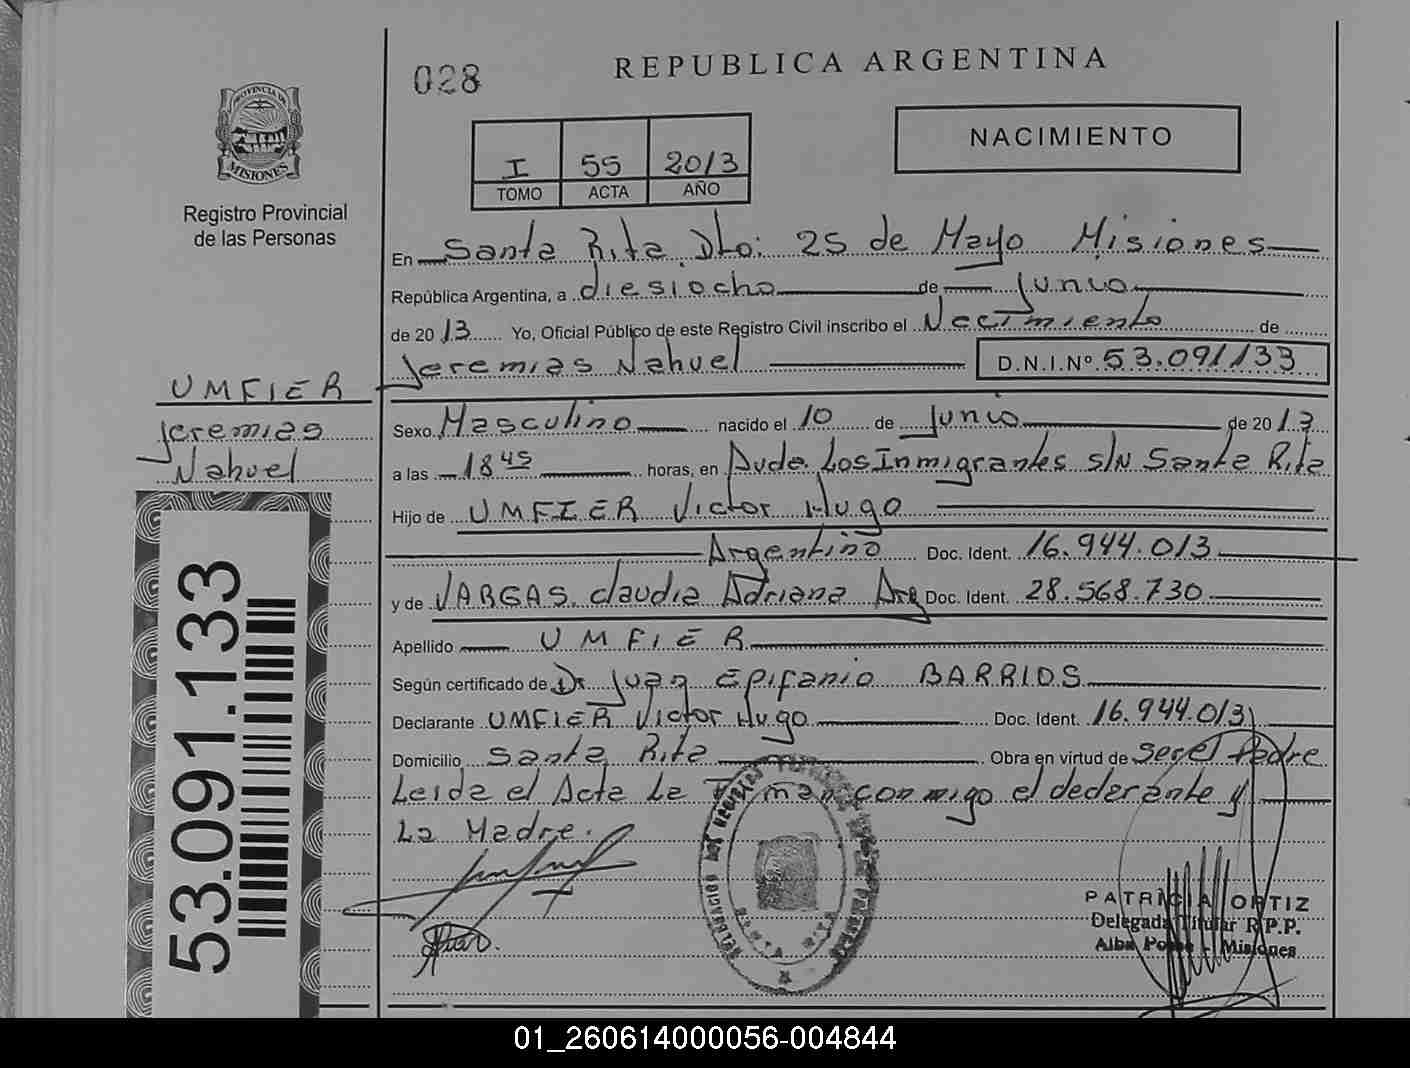 028
REPUBLICA ARGENTINA
PROVINCIA DE
MISIONES
Registro Provincial
de las Personas
NACIMIENTO
I 55 2013
TOMO ACTA AÑO
En Santa Rita Dto: 25 de Mayo Misiones
República Argentina, a diesiocho de Junio
de 2013 Yo, Oficial Público de este Registro Civil inscribo el Nacimiento de
Jeremias Nahuel D.N.I. Nº 53.091133
UMFIER
Jeremias
Nahuel
Sexo Masculino nacido el 10 de Junio de 2013
a las 18 45 horas, en Avda. Los Inmigrantes s/N Santa Rita
Hijo de UMFIER Victor Hugo
Argentino Doc. Ident. 16.944.013
y de VARGAS. Claudia Adriana Arg Doc. Ident. 28.568.730
Apellido UMFIER
Según certificado de Dr. Juan Epifanio BARRIOS
Declarante UMFIER Victor Hugo Doc. Ident. 16.944.013
Domicilio Santa Rita Obra en virtud de Ser el Padre
Leida el Acta La Firman conmigo el declarante y
La Madre.
53.091.133
SANTA RITA
PATRICIA ORTIZ
Delegada Titular R.P.P.
Alba Posse - Misiones
01_260614000056-004844